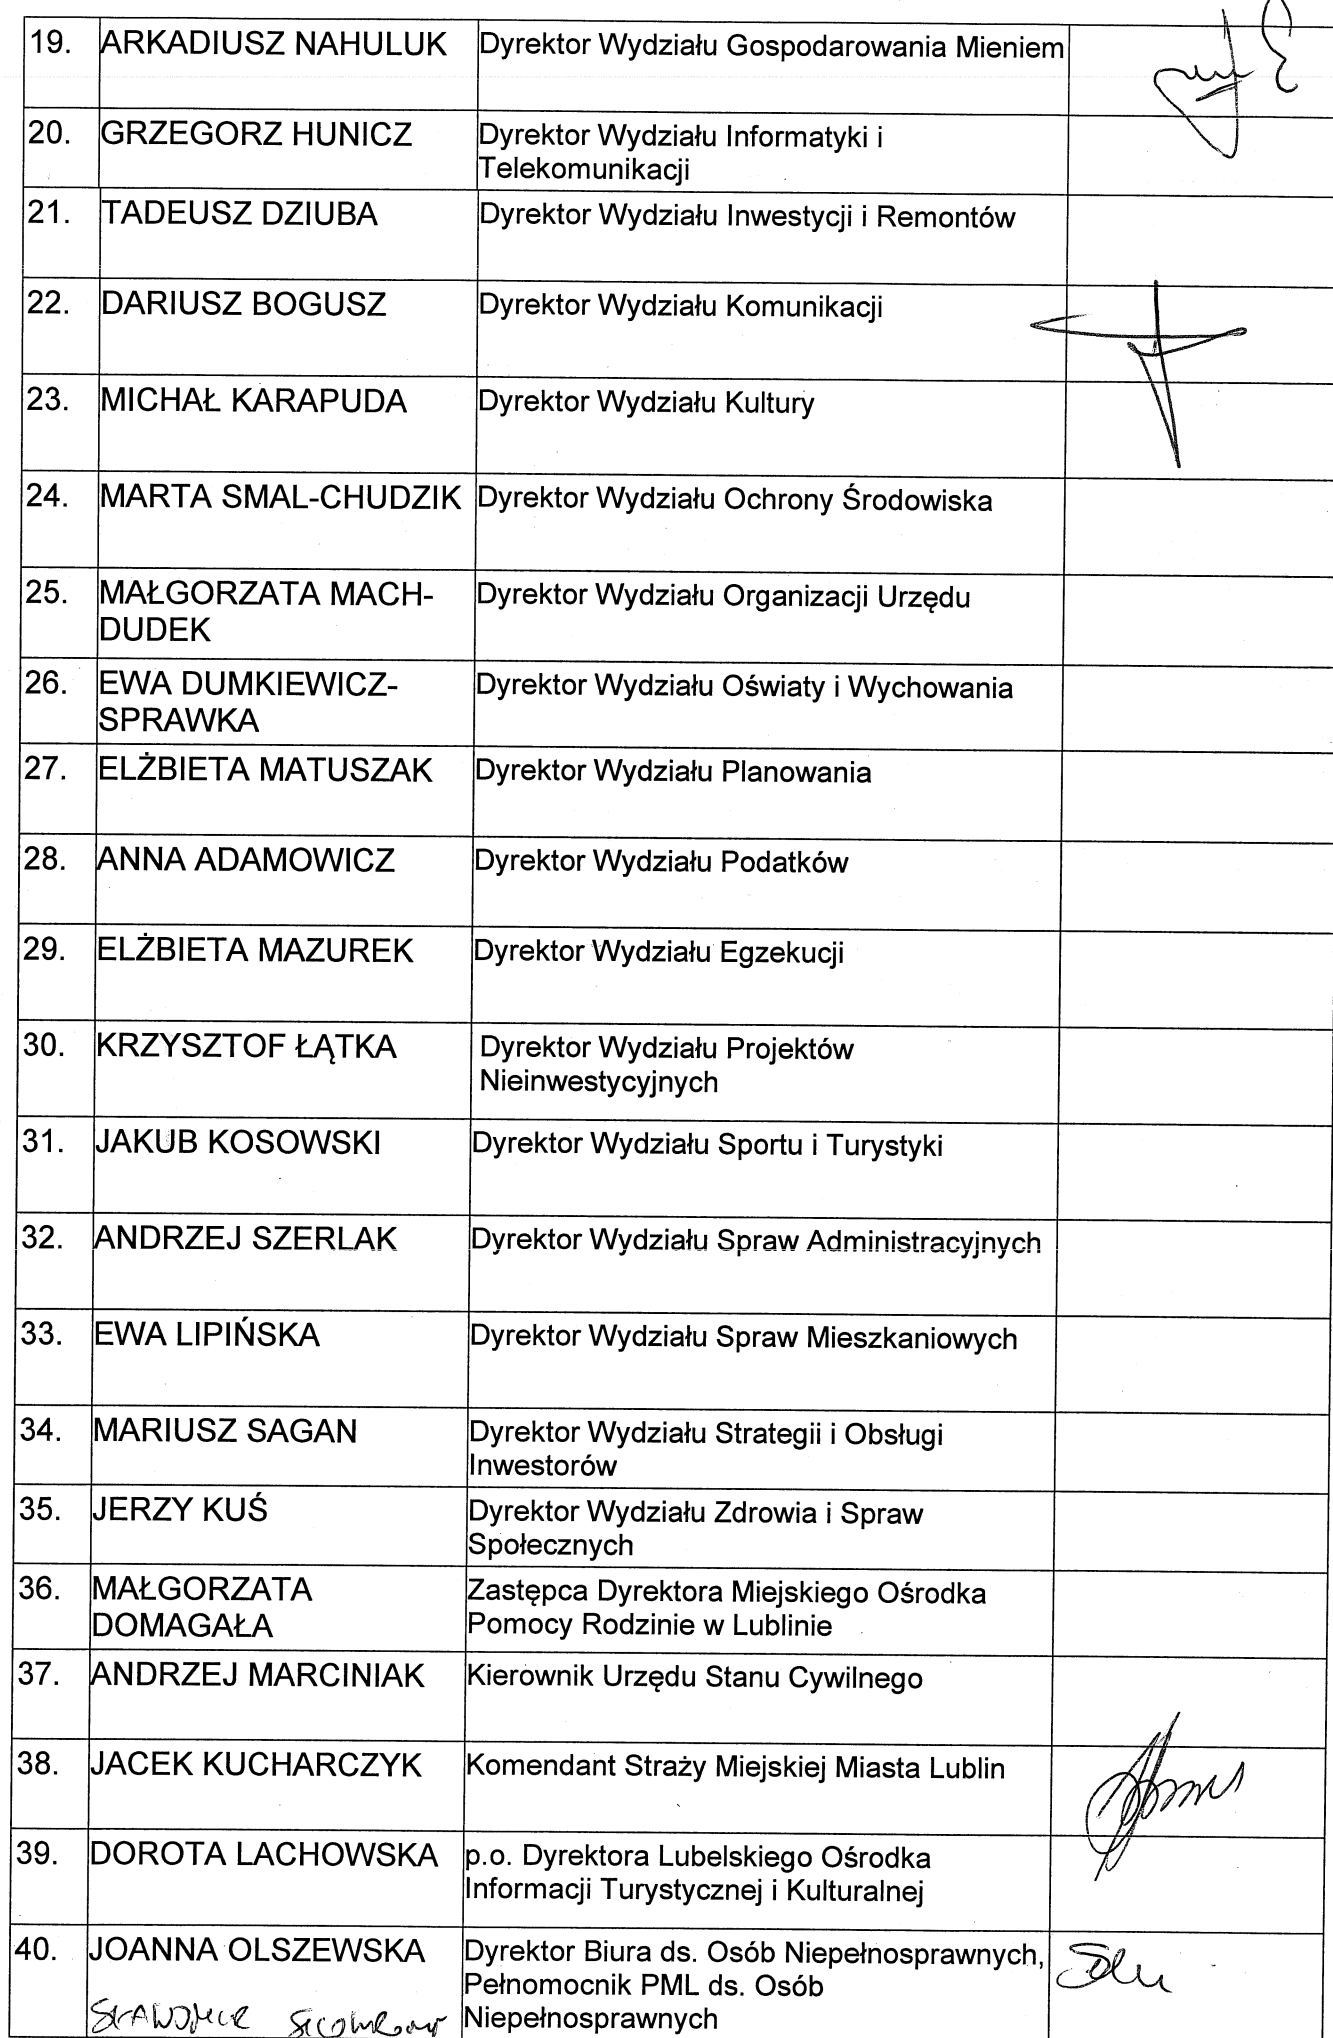 19. ARKADIUSZ NAHULUK Dyrektor Wydziału Gospodarowania Mieniem
20. GRZEGORZ HUNICZ Dyrektor Wydziału Informatyki i
Telekomunikacji
21. TADEUSZ DZIUBA Dyrektor Wydziału Inwestycji i Remontów
22. DARIUSZ BOGUSZ Dyrektor Wydziału Komunikacji
23. MICHAŁ KARAPUDA Dyrektor Wydziału Kultury
24. MARTA SMAL-CHUDZIK Dyrektor Wydziału Ochrony Środowiska
25. MAŁGORZATA MACH- Dyrektor Wydziału Organizacji Urzędu
DUDEK
26. EWA DUMKIEWICZ- Dyrektor Wydziału Oświaty i Wychowania
SPRAWKA
27. ELŻBIETA MATUSZAK Dyrektor Wydziału Planowania
28. ANNA ADAMOWICZ Dyrektor Wydziału Podatków
29. ELŻBIETA MAZUREK Dyrektor Wydziału Egzekucji
30. KRZYSZTOF ŁĄTKA Dyrektor Wydziału Projektów
Nieinwestycyjnych
31. JAKUB KOSOWSKI Dyrektor Wydziału Sportu i Turystyki
32. ANDRZEJ SZERLAK Dyrektor Wydziału Spraw Administracyjnych
33. EWA LIPIŃSKA Dyrektor Wydziału Spraw Mieszkaniowych
34. MARIUSZ SAGAN Dyrektor Wydziału Strategii i Obsługi
Inwestorów
35. JERZY KUŚ Dyrektor Wydziału Zdrowia i Spraw
Społecznych
36. MAŁGORZATA Zastępca Dyrektora Miejskiego Ośrodka
DOMAGAŁA Pomocy Rodzinie w Lublinie
37. ANDRZEJ MARCINIAK Kierownik Urzędu Stanu Cywilnego
38. JACEK KUCHARCZYK Komendant Straży Miejskiej Miasta Lublin
39. DOROTA LACHOWSKA p.o. Dyrektora Lubelskiego Ośrodka
Informacji Turystycznej i Kulturalnej
40. JOANNA OLSZEWSKA Dyrektor Biura ds. Osób Niepełnosprawnych,
Pełnomocnik PML ds. Osób
Niepełnosprawnych